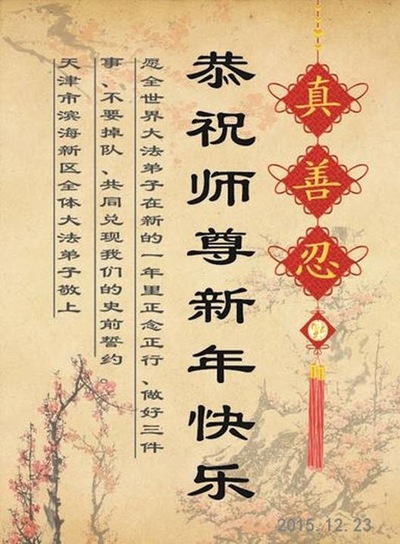 真善忍
恭祝师尊新年快乐
愿全世界大法弟子在新的一年里正念正行、做好三件
事、不要掉队、共同兑现我们的史前誓约。
天津市滨海新区全体大法弟子敬上
2015.12.23